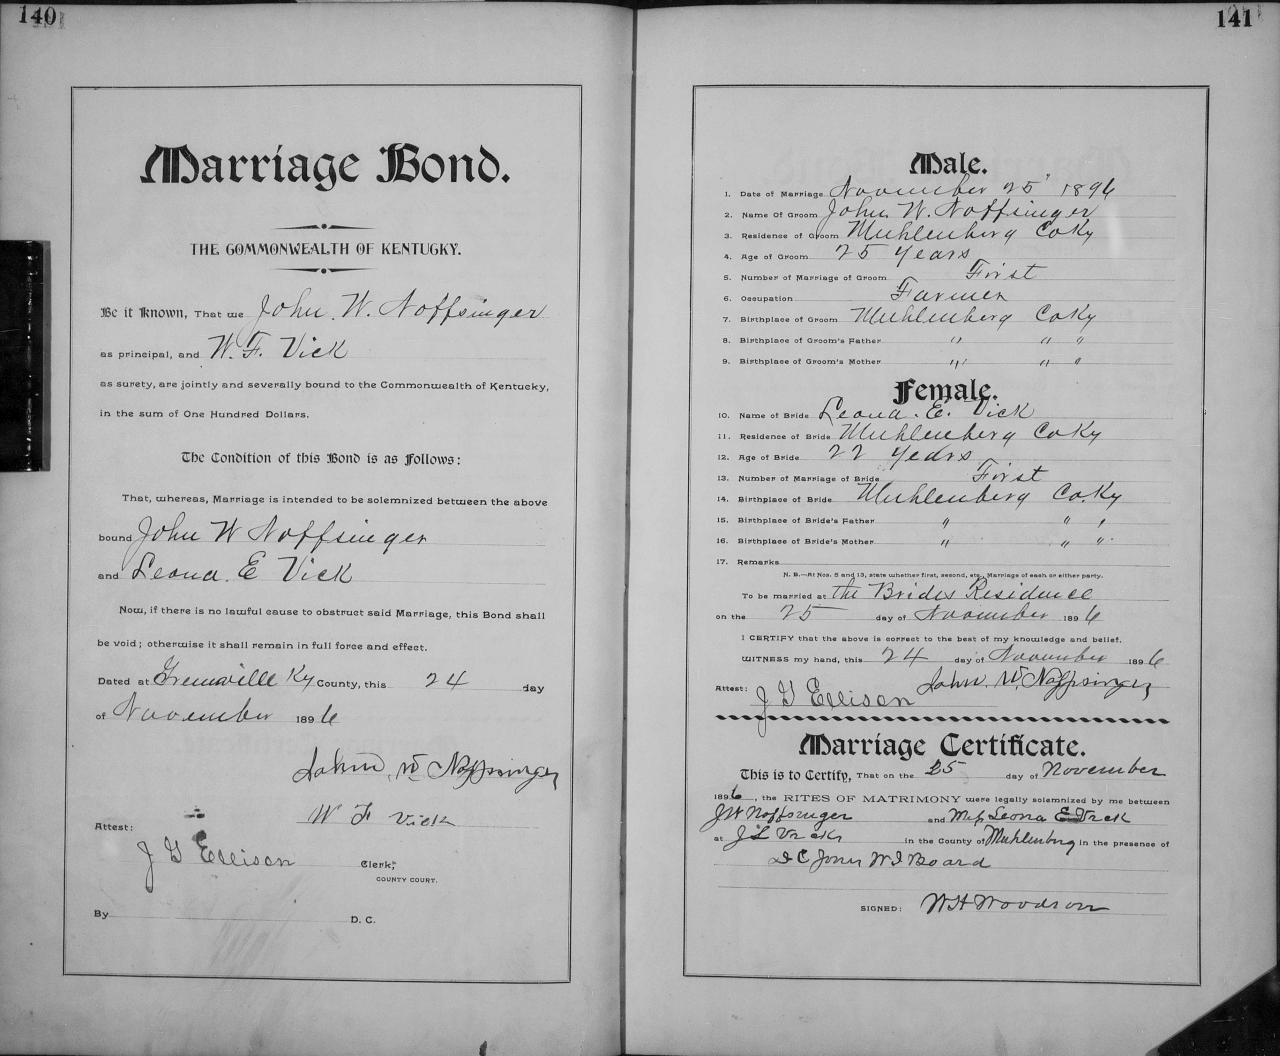 140
Marriage Bond.
THE COMMONWEALTH OF KENTUCKY.
Be it Known, That we John. W. Noffsinger
as principal, and W. F. Vick
as surety, are jointly and severally bound to the Commonwealth of Kentucky,
in the sum of One Hundred Dollars.
The Condition of this Bond is as Follows:
That, whereas, Marriage is intended to be solemnized between the above
bound John W Noffsinger
and Leona. E Vick
Now, if there is no lawful cause to obstruct said Marriage, this Bond shall
be void; otherwise it shall remain in full force and effect.
Dated at Greenville Ky County, this 24 day
of November 1896
John. W Noffsinger
W F Vick
Attest:
J G Ellison Clerk,
COUNTY COURT.
By D. C.
141
Male.
1. Date of Marriage November 25" 1896
2. Name Of Groom John. W. Noffsinger
3. Residence of Groom Muhlenberg Co Ky
4. Age of Groom 25 Years
5. Number of Marriage of Groom First
6. Occupation Farmer
7. Birthplace of Groom Muhlenberg Co Ky
8. Birthplace of Groom's Father " " "
9. Birthplace of Groom's Mother " " "
Female.
10. Name of Bride Leona. E. Vick
11. Residence of Bride Muhlenberg Co Ky
12. Age of Bride 22 Years
13. Number of Marriage of Bride First
14. Birthplace of Bride Muhlenberg Co. Ky
15. Birthplace of Bride's Father " " "
16. Birthplace of Bride's Mother " " "
17. Remarks
N. B.—At Nos. 5 and 13, state whether first, second, etc., Marriage of each or either party.
To be married at the Brides Residence
on the 25 day of November 1896
I CERTIFY that the above is correct to the best of my knowledge and belief.
WITNESS my hand, this 24 day of November 1896
John. W. Noffsinger
Attest: J G Ellison
Marriage Certificate.
This is to Certify, That on the 25 day of November
1896, the RITES OF MATRIMONY were legally solemnized by me between
J W Noffsinger and Miss Leona E Vick
at J L Vicks in the County of Muhlenburg in the presence of
D C Jones W I Board
SIGNED: W H Woodson